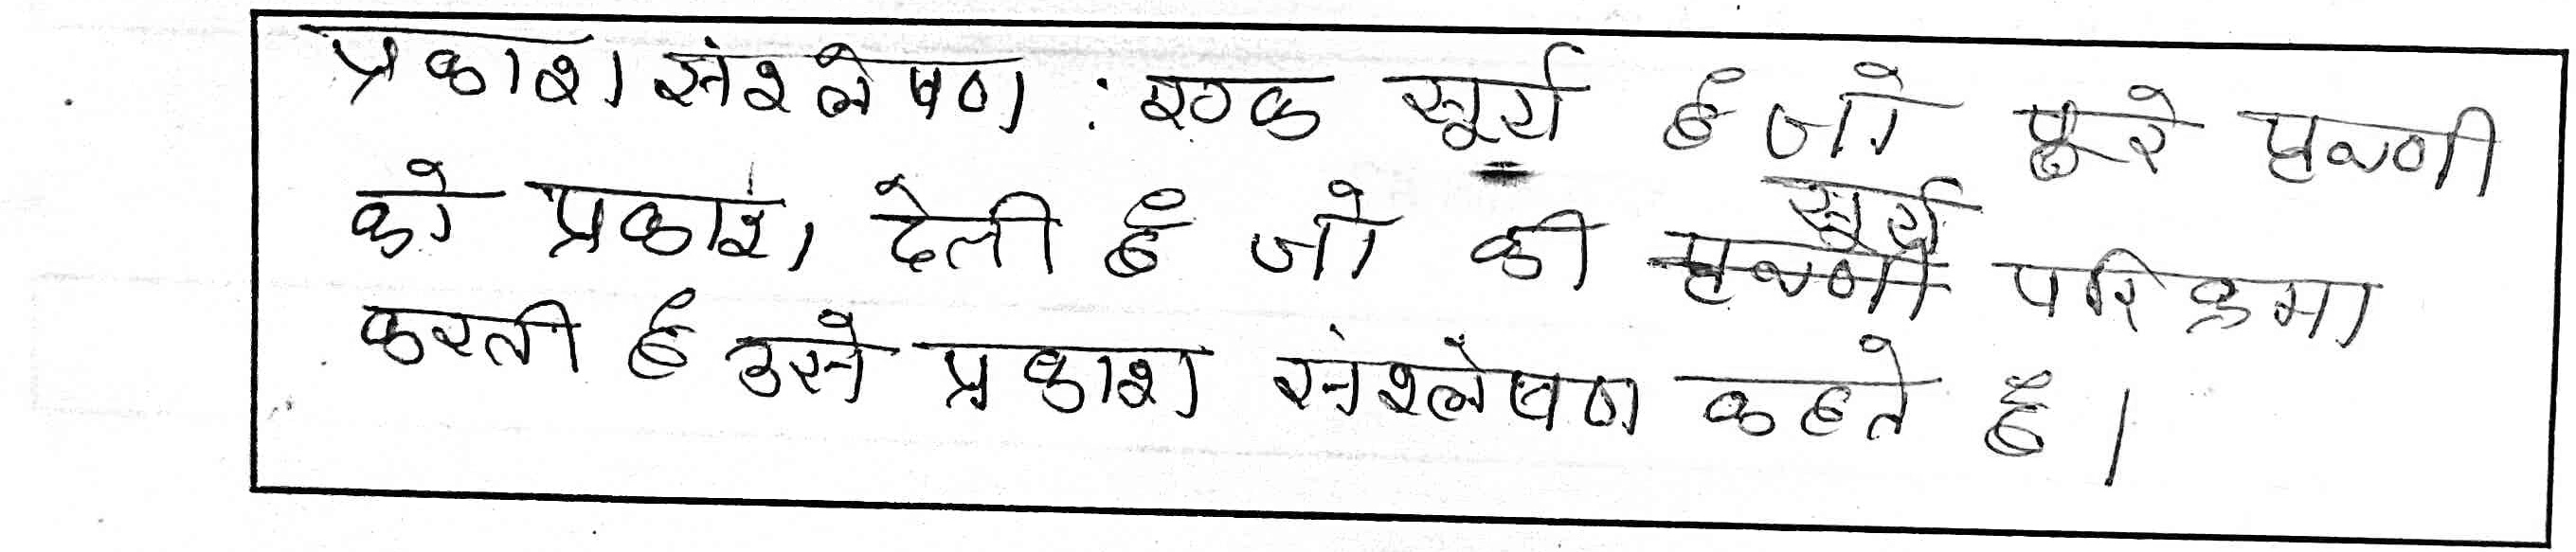 प्रकाश संश्लेषण : एक सूर्य है जो पूरे पृथ्वी
को प्रकाश देती है जो की सूर्य परिक्रमा
करती है उसे प्रकाश संश्लेषण कहते है।